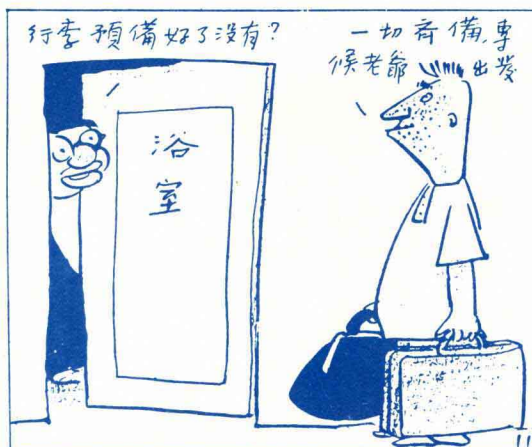 行李預備好了没有?
一切齊備,專
候老爺出發
浴
室